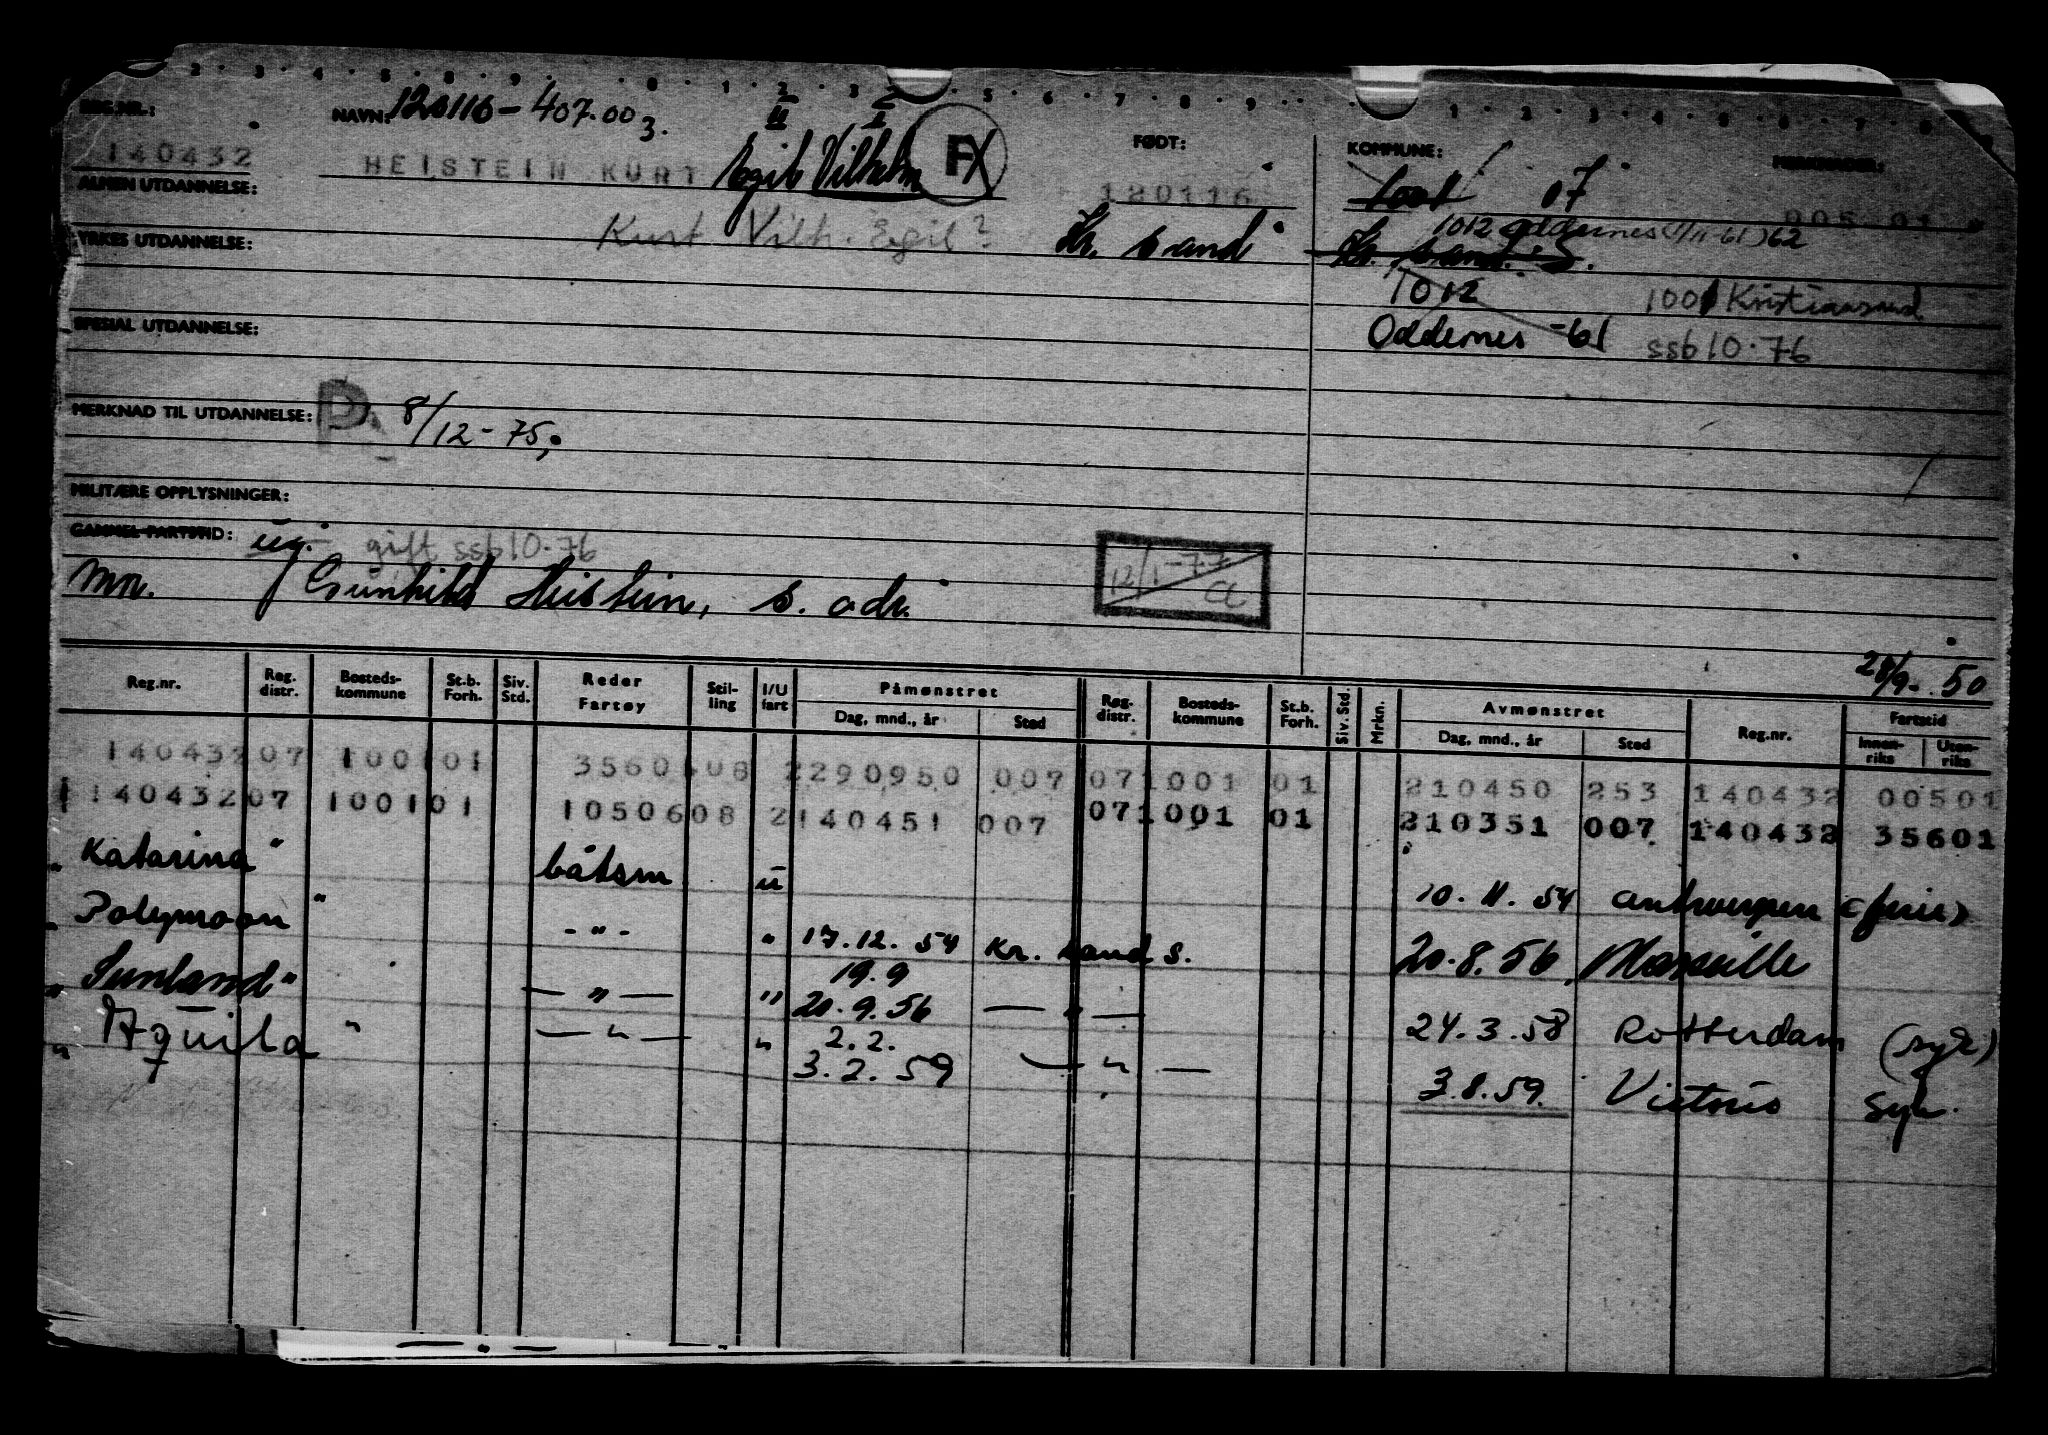 REG.NR.: NAVN: 120116-407.00 3. FØDT: KOMMUNE: MERKNADER:
140432 HEISTEIN KURT Egil Vilhelm FX 120116 1001 07 005 01
ALMEN UTDANNELSE:
Kurt Vilh. Egil? Kr. sand 1012 Oddernes (1/11-61) 62
YRKES UTDANNELSE: Kr. sand. S.
1012 1001 Kristiansand
SPESIAL UTDANNELSE: Oddernes -61 ssb 10.76
MERKNAD TIL UTDANNELSE: 8/12-75,
MILITÆRE OPPLYSNINGER:
GAMMEL FARTSTID: ug. gift ssb 10.76 12/1-77 CL
mn. Gunhild Heistein, s. adr.
28/9-50
Reg.nr. Reg. distr. Bosteds-kommune St.b. Forh. Siv. Std. Reder Fartøy Stil-ling I/U fart Påmønstret Reg. distr. Bosteds-kommune St.b. Forh. Siv. Std. Mrkn. Avmønstret Reg.nr. Fartstid
Dag, mnd., år Sted Dag, mnd., år Sted Innen-riks Uten-riks
140432 07 1001 01 3560608 2 290950 007 07 1001 01 210450 253 140432 00501
1 140432 07 1001 01 1050608 2 140451 007 07 1001 01 210351 007 140432 35601
" Katarina " båtsm u 10.11.54 Antwerpen (ferie)
" Polymoon " - " - " 17.12.54 Kr. sand S. 20.8.56 Marseille
19.9
" Sunland " — " — " 20.9.56 — " — 24.3.58 Rotterdam (syk)
2.2.
" Aquila " — " — " 3.2.59 — " — 3.8.59. Victoria syk.